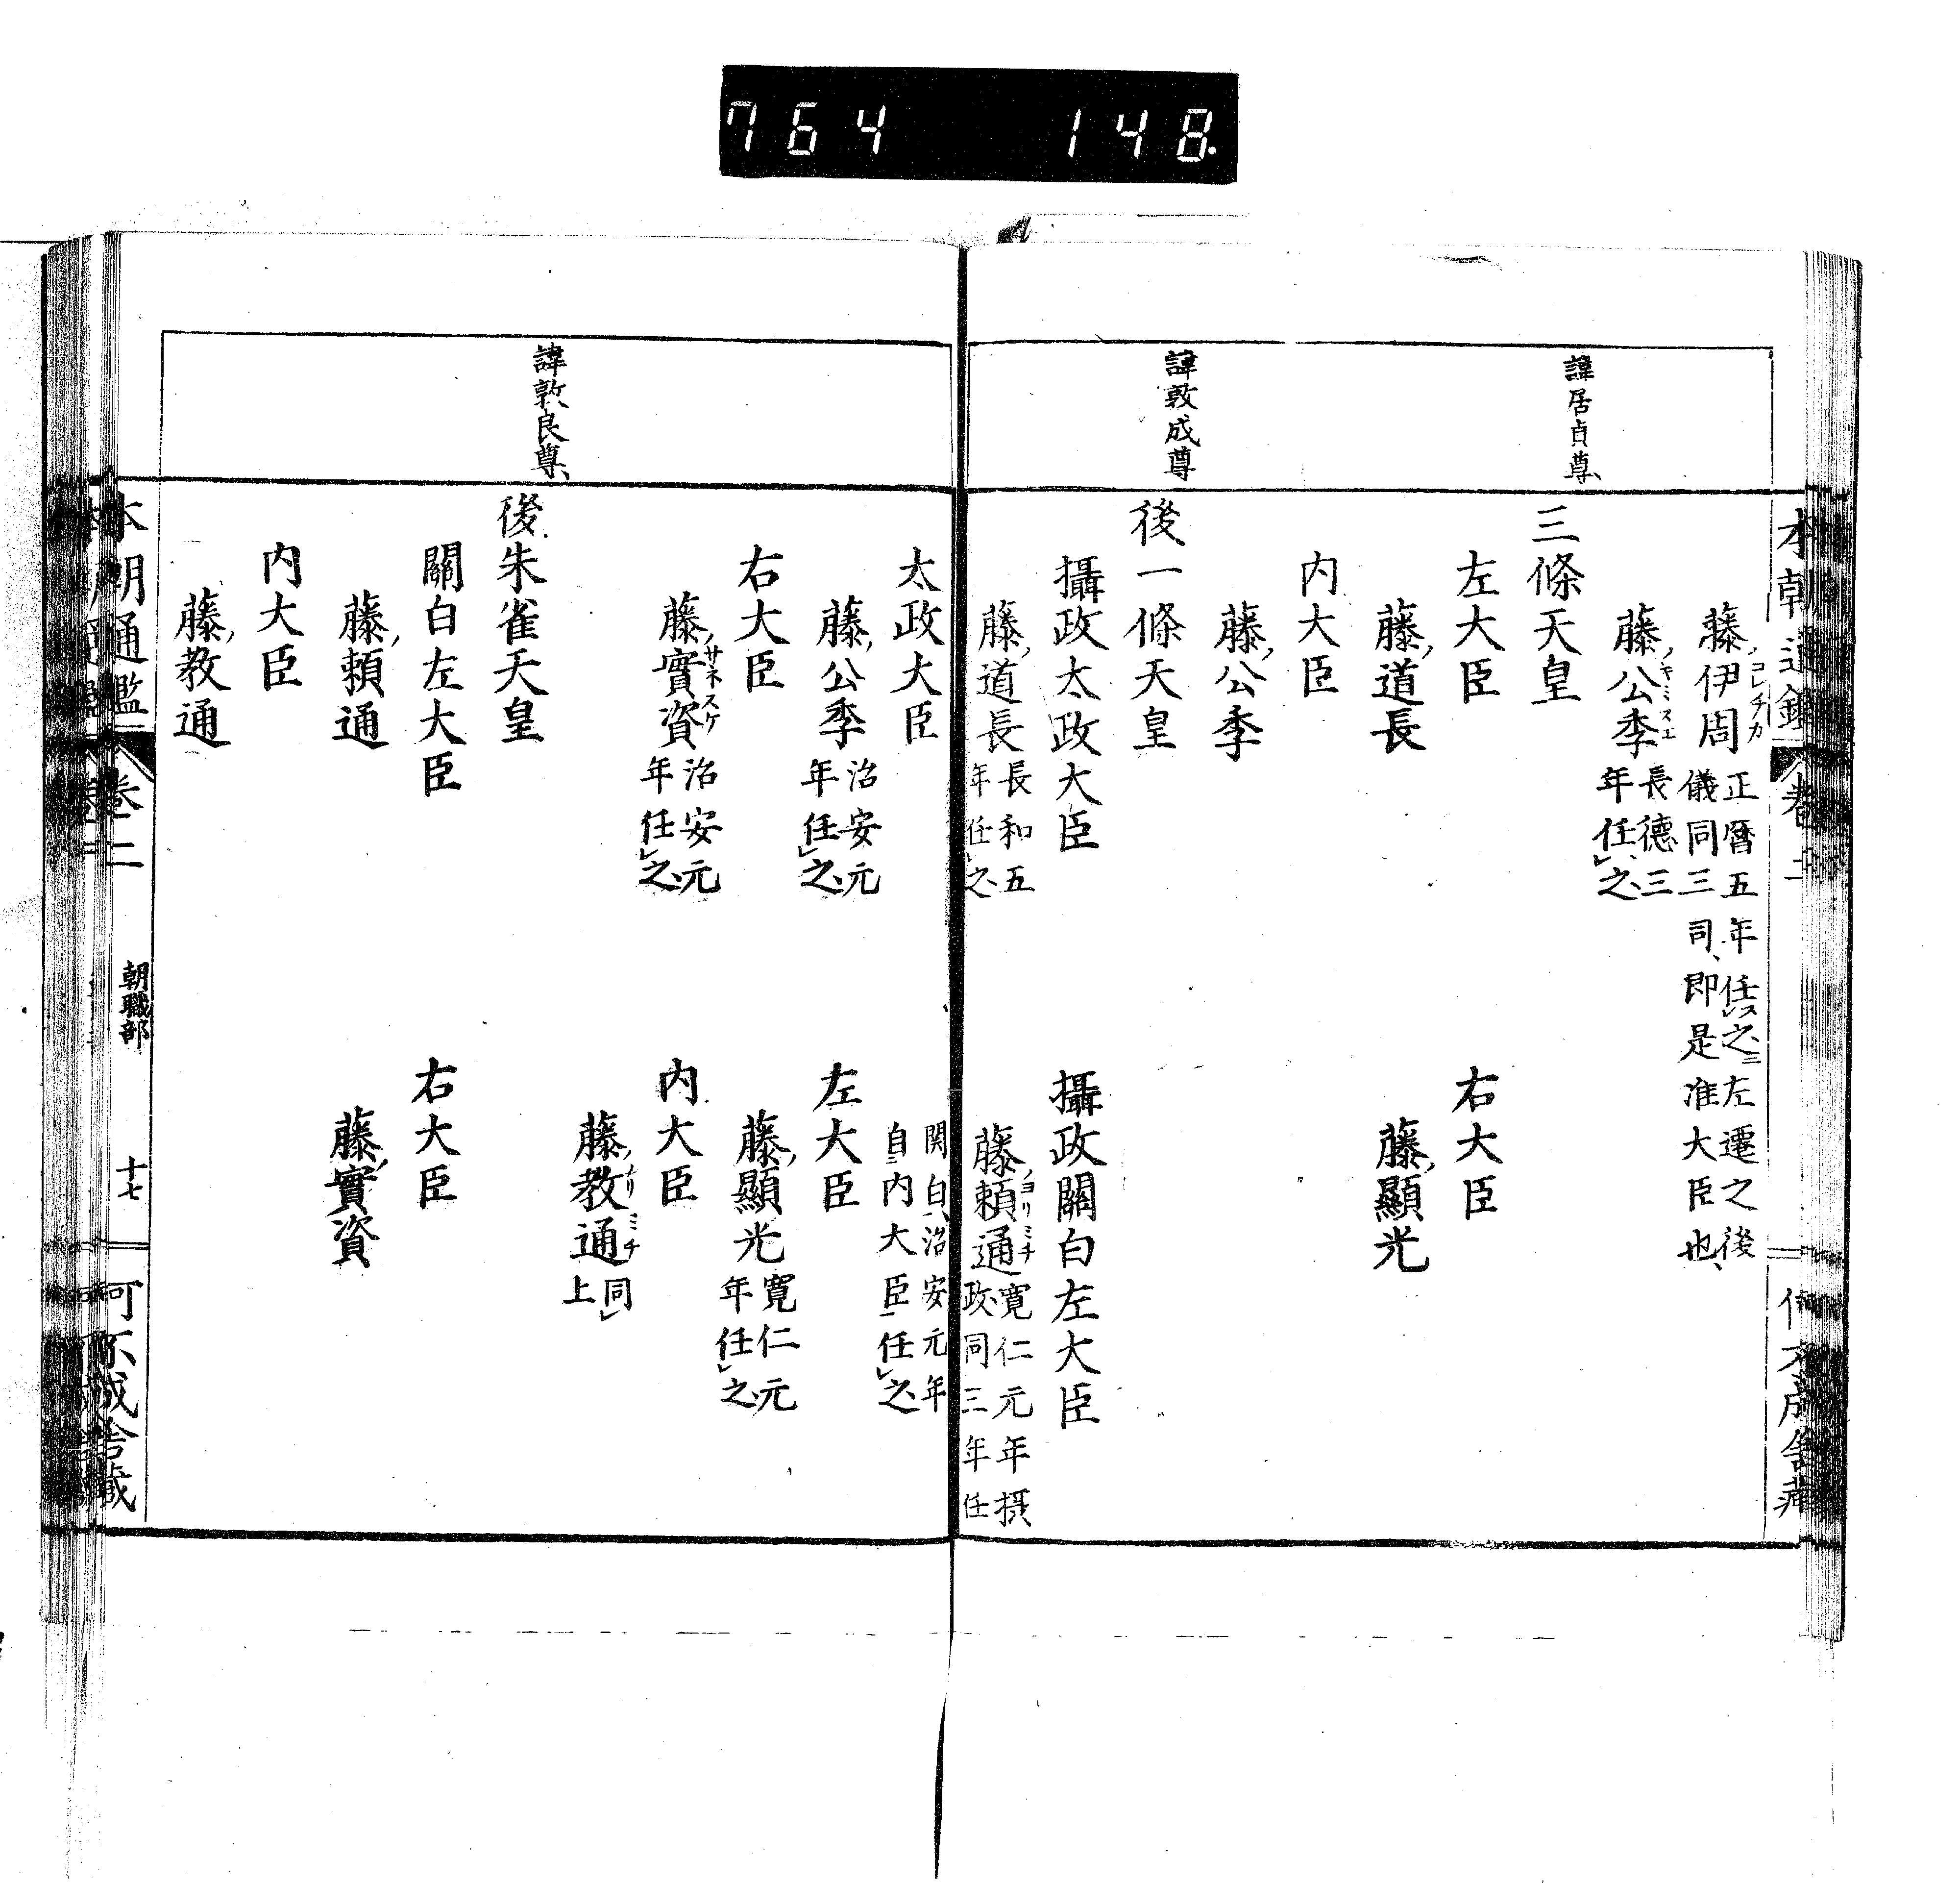 764 148.
藤伊周 コレチカ 正曆五年任之左遷之後
儀同三司即是准大臣也
藤公季 キミスエ 長德三
年任之
諱居貞尊
三條天皇
左大臣
右大臣
藤道長
藤顯光
内大臣
藤公季
諱敦成尊
後一條天皇
攝政太政大臣
攝政關白左大臣
藤道長 長和五
年任之
藤賴通 ヨリミチ 寛仁元年摂
政同三年任
関白治安元年
自内大臣任之
太政大臣
左大臣
藤公季 治安元
年任之
藤顯光 寛仁元
年任之
右大臣
内大臣
藤實資 サネスケ 治安元
年任之
藤教通 ノリミチ 同
上
諱敦良尊
後朱雀天皇
關白左大臣
右大臣
藤賴通
藤實資
内大臣
藤教通
本朝通鑑 卷二 朝職部 十七